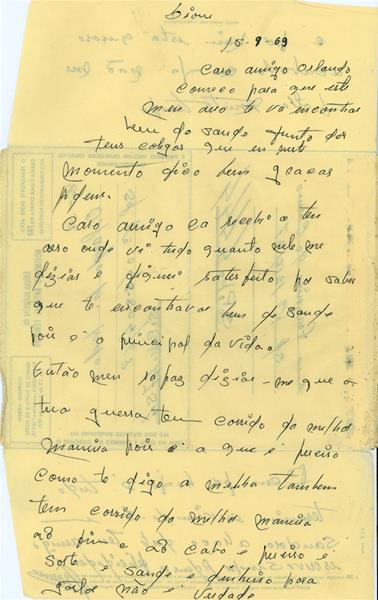 Dione
15-9-69
Caro amigo Orlando
Começo para que este
Meu aro te vá encontrar
bem do saude junto dos
teus colegas que eu neste
momento fico bem graças
a deus.
Caro amigo ca recebi o teu
aero onde vi tudo quanto nele me
dizias e fiquei satesfeito por saber
que te encontravas bem de saude
pois é o principal da vida.
Então meu rapaz dizias-me que a
tua guerra tem corrido do melhor
maneira pois é a que é preciso
como te digo a minha tambem
tem corrido da melhor maneira
ao fim e ao cabo é preciso é
sorte e saude e dinheiro para
gastar não é verdade